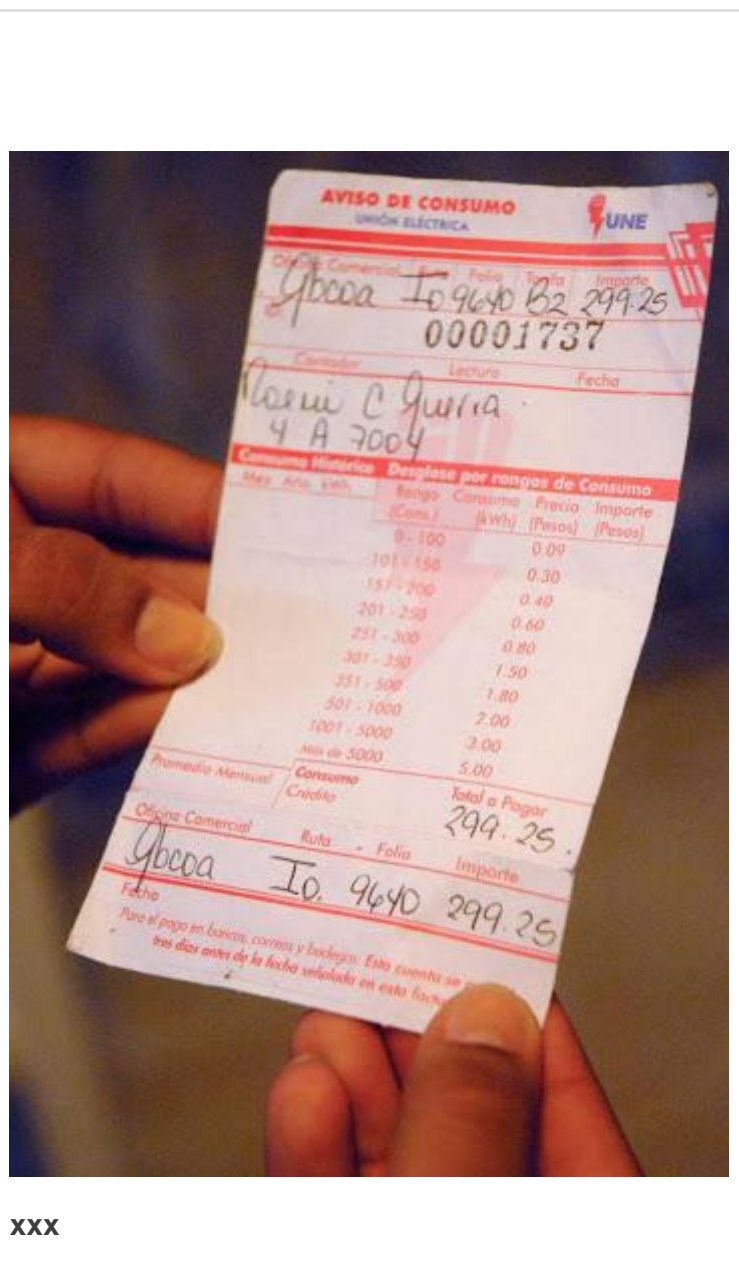 AVISO DE CONSUMO
UNIÓN ELÉCTRICA
UNE
Oficina Comercial Folio Tarifa Importe
Gbcoa Io 9640 B2 299.25
00001737
Contador Lectura Fecha
Noemi C Guerra
4 A 7004
Consumo Histórico Desglose por rangos de Consumo
Mes Año kWh Rango Consumo Precio Importe
(Cons.) (kWh) (Pesos) (Pesos)
0 - 100 0.09
101 - 150 0.30
151 - 200 0.40
201 - 250 0.60
251 - 300 0.80
301 - 350 1.50
351 - 500 1.80
501 - 1000 2.00
1001 - 5000 3.00
Más de 5000 5.00
Promedio Mensual Consumo Total a Pagar
Crédito 299.25.
Oficina Comercial Ruta - Folio Importe
Gbcoa Io. 9640 299.25
Fecha
Para el pago en bancos, correos y bodegas. Esta cuenta se
tres días antes de la fecha señalada en esta
xxx